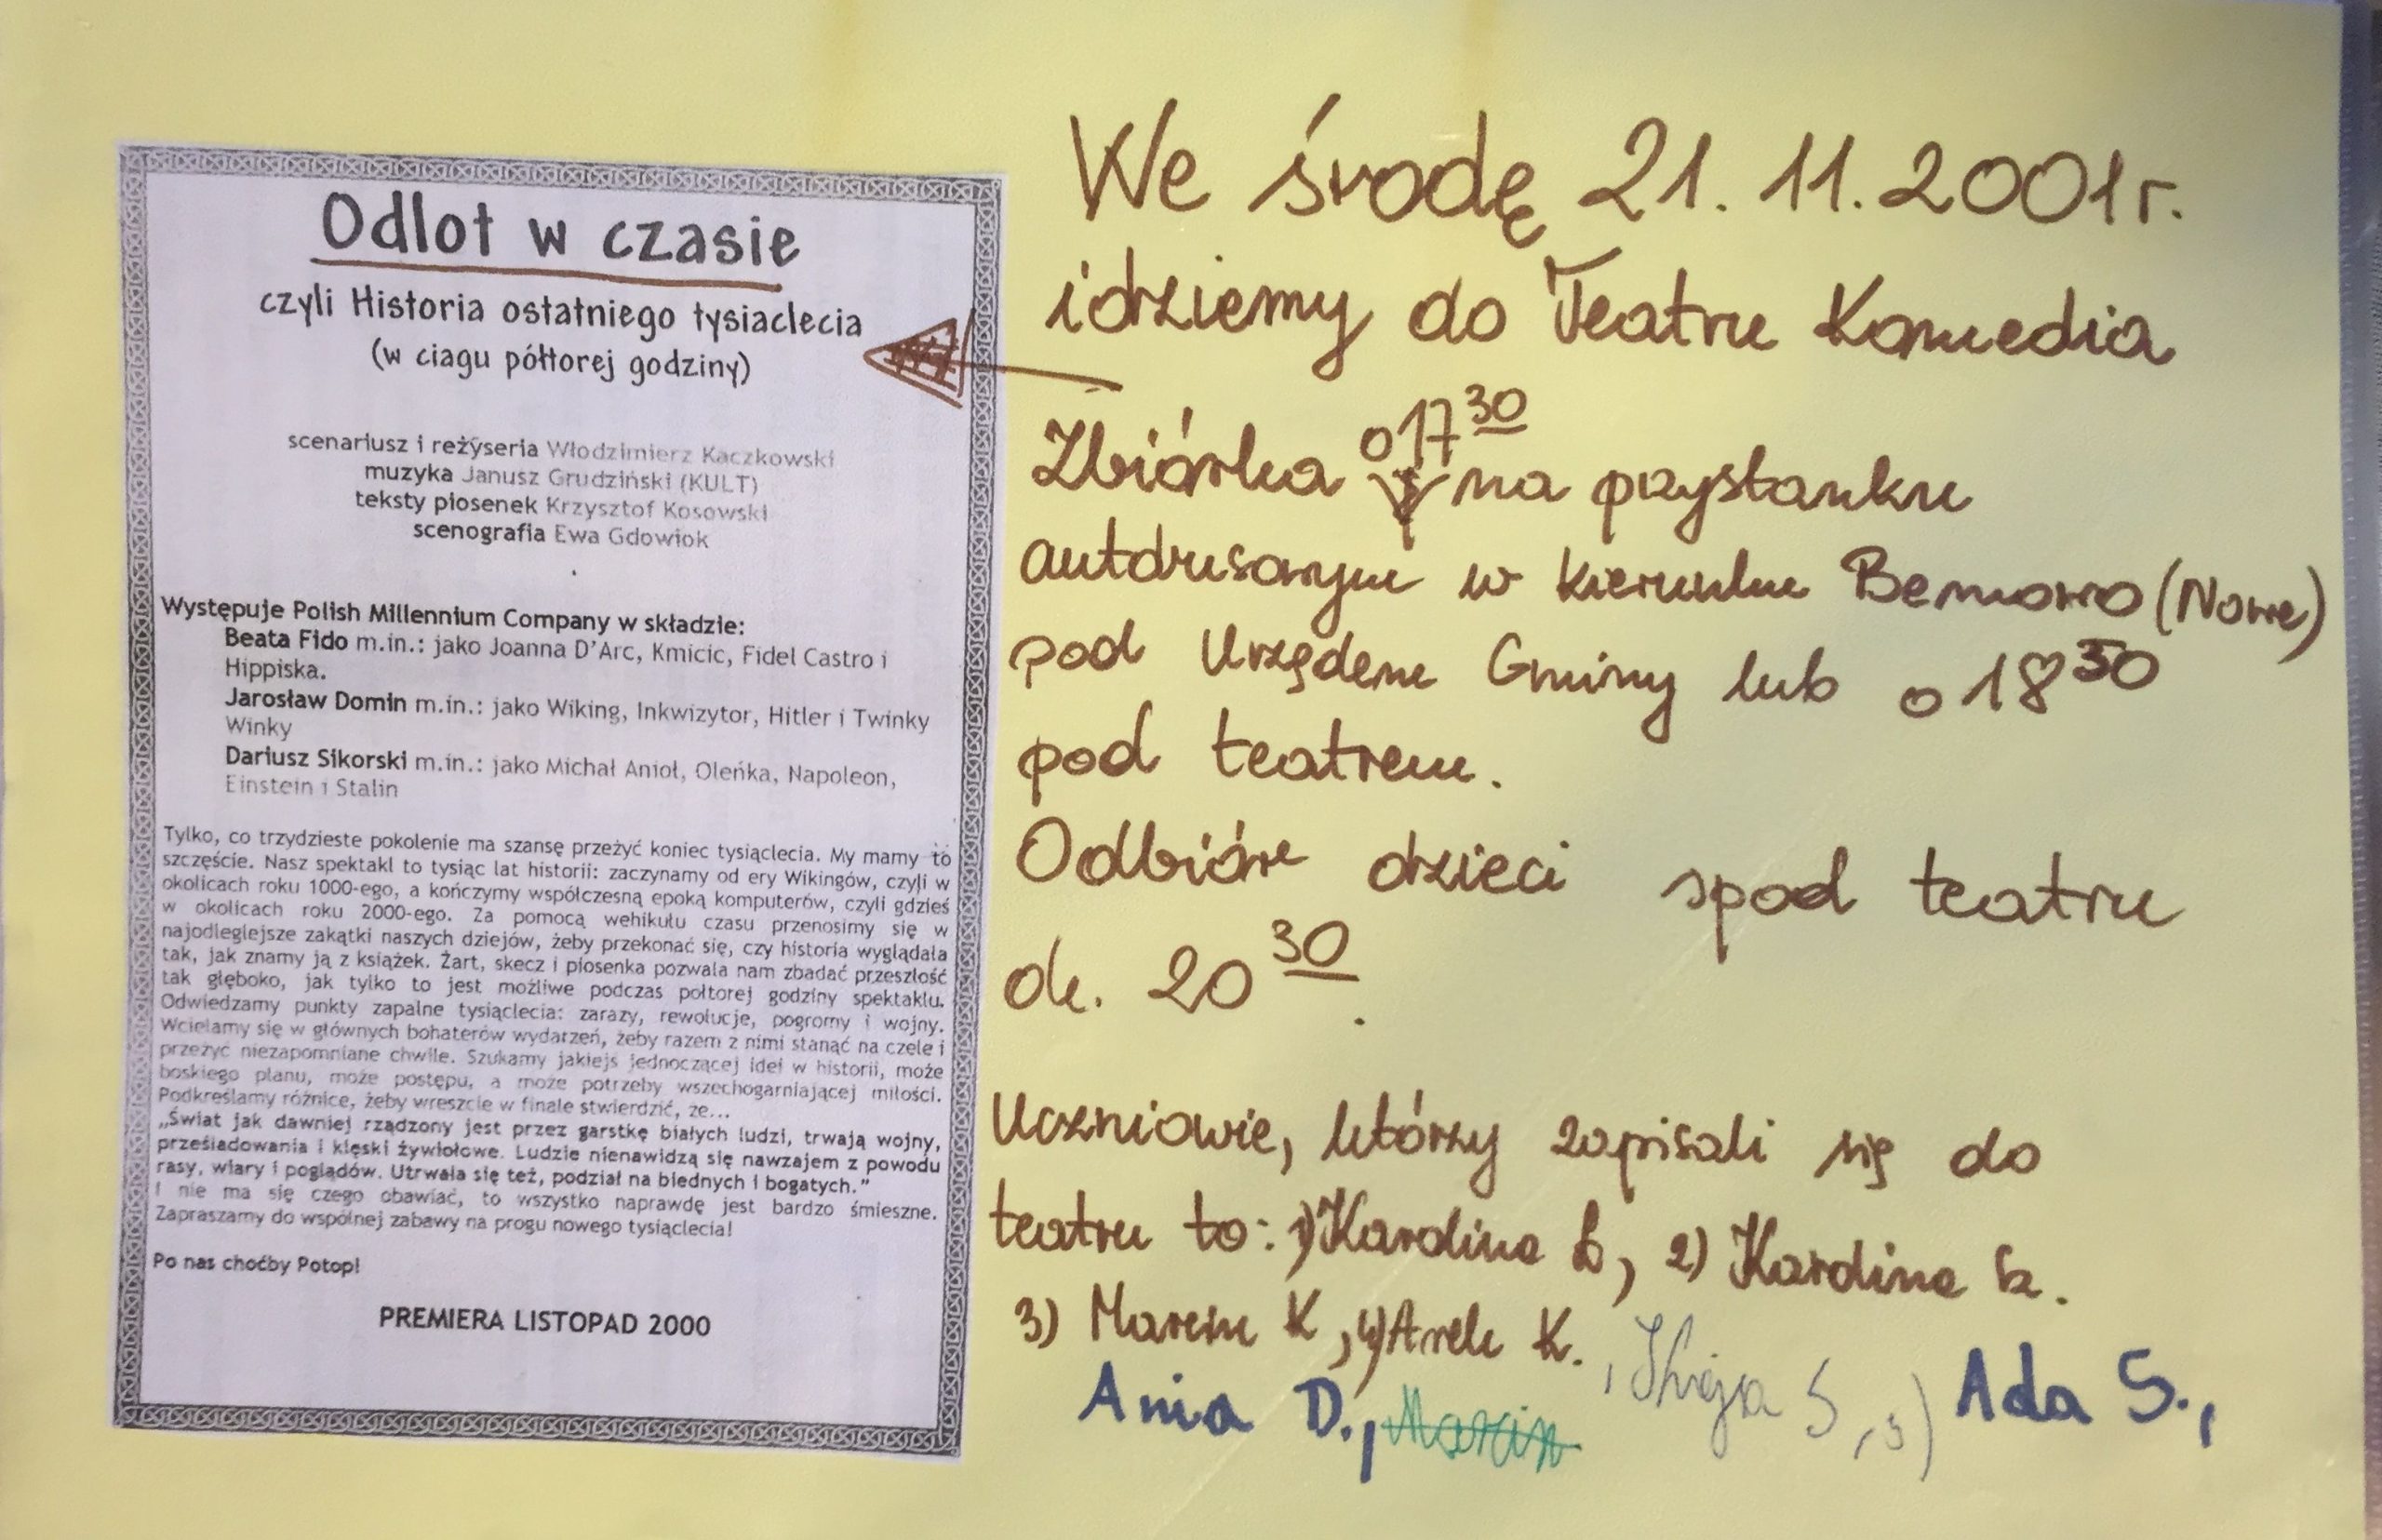 Odlot w czasie
czyli Historia ostatniego tysiaclecia
(w ciagu półtorej godziny)
scenariusz i reżyseria Włodzimierz Kaczkowski
muzyka Janusz Grudziński (KULT)
teksty piosenek Krzysztof Kosowski
scenografia Ewa Gdowiok
Występuje Polish Millennium Company w składzie:
Beata Fido m.in.: jako Joanna D'Arc, Kmicic, Fidel Castro i
Hippiska.
Jarosław Domin m.in.: jako Wiking, Inkwizytor, Hitler i Twinky
Winky
Dariusz Sikorski m.in.: jako Michał Anioł, Oleńka, Napoleon,
Einstein i Stalin
Tylko, co trzydzieste pokolenie ma szansę przeżyć koniec tysiąclecia. My mamy to
szczęście. Nasz spektakl to tysiąc lat historii: zaczynamy od ery Wikingów, czyli w
okolicach roku 1000-ego, a kończymy współczesną epoką komputerów, czyli gdzieś
w okolicach roku 2000-ego. Za pomocą wehikułu czasu przenosimy się w
najodleglejsze zakątki naszych dziejów, żeby przekonać się, czy historia wyglądała
tak, jak znamy ją z książek. Żart, skecz i piosenka pozwala nam zbadać przeszłość
tak głęboko, jak tylko to jest możliwe podczas półtorej godziny spektaklu.
Odwiedzamy punkty zapalne tysiąclecia: zarazy, rewolucje, pogromy i wojny.
Wcielamy się w głównych bohaterów wydarzeń, żeby razem z nimi stanąć na czele i
przeżyć niezapomniane chwile. Szukamy jakiejś jednoczącej idei w historii, może
boskiego planu, może postępu, a może potrzeby wszechogarniającej miłości.
Podkreślamy różnice, żeby wreszcie w finale stwierdzić, że...
„Świat jak dawniej rządzony jest przez garstkę białych ludzi, trwają wojny,
prześladowania i klęski żywiołowe. Ludzie nienawidzą się nawzajem z powodu
rasy, wiary i poglądów. Utrwala się też, podział na biednych i bogatych."
I nie ma się czego obawiać, to wszystko naprawdę jest bardzo śmieszne.
Zapraszamy do wspólnej zabawy na progu nowego tysiąclecia!
Po nas choćby Potop!
PREMIERA LISTOPAD 2000
We środę 21.11.2001r.
idziemy do Teatru Komedia
Zbiórka o 17 30 na przystanku
autobusowym w kierunku Bemowo (Nowe)
pod Urzędem Gminy lub o 18 30
pod teatrem.
Odbiór dzieci spod teatru
ok. 20 30.
Uczniowie, którzy zapisali się do
teatru to: 1) Karolina Ł, 2) Karolina
3) Marcin K, 4) Arek K.
Ania D., Marcin S, 5) Ada S.,